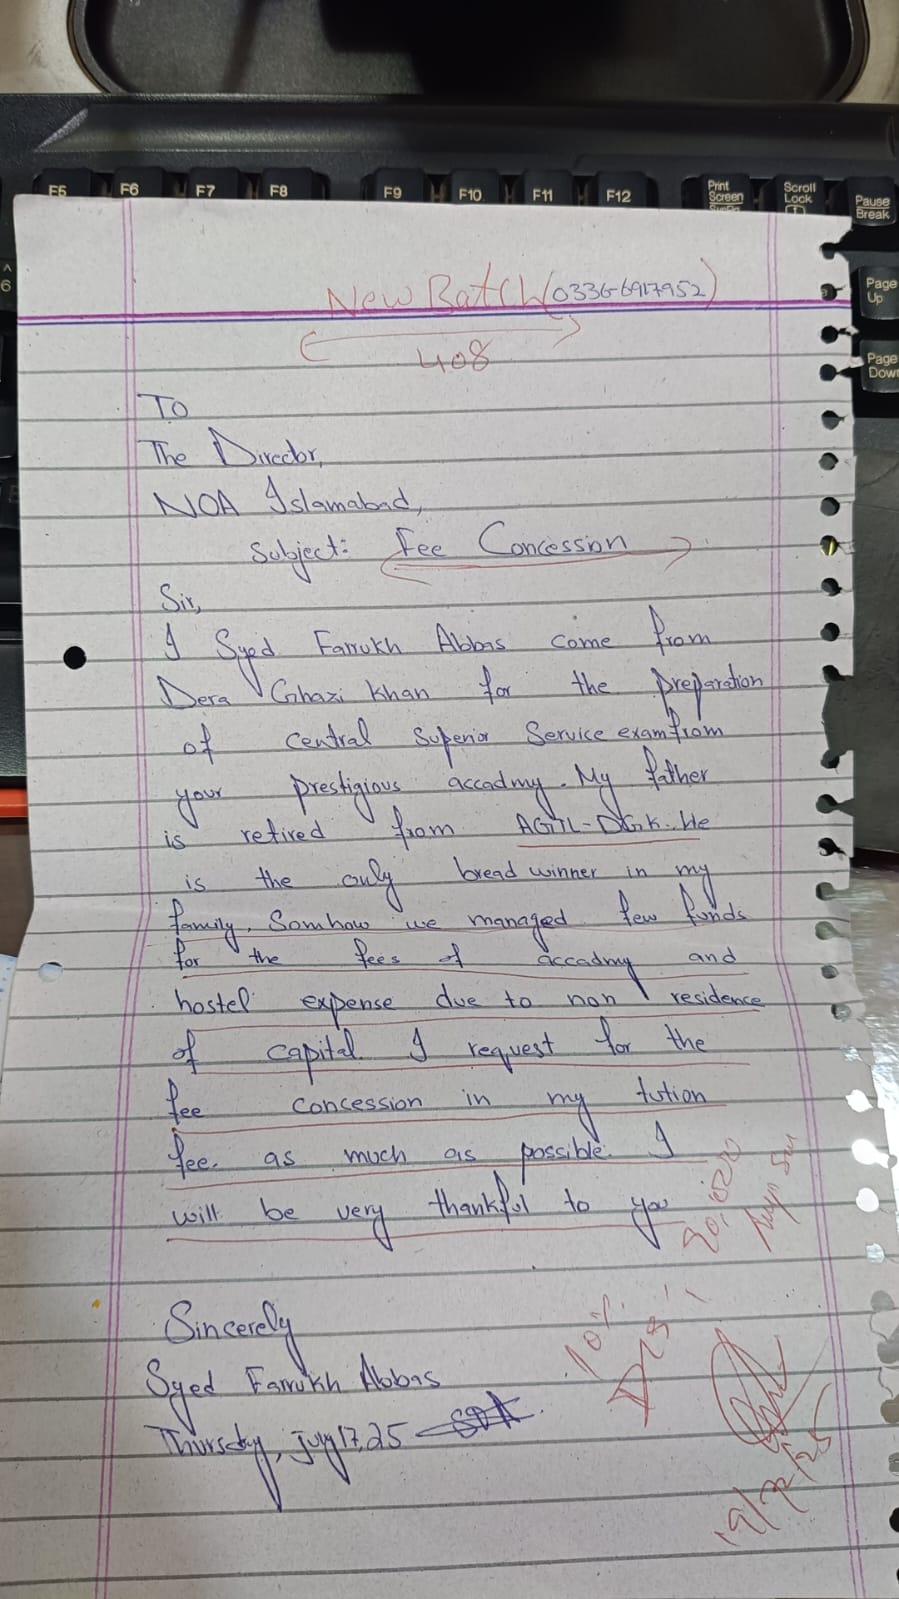 F5 F6 F7 F8 F9 F10 F11 F12 Print Screen Scroll Lock Pause Break
6
Page Up
Page Down
New Batch (0336-6917952)
408
To
The Director,
NOA Islamabad,
Subject: Fee Concession
Sir,
I Syed Farrukh Abbas come from
Dera Ghazi Khan for the preparation
of central Superior Service exam from
your prestigious accadmy. My father
is retired from AGTL-DGK. He
is the only bread winner in my
family. Somhow we managed few funds
for the fees of accadmy and
hostel expense due to non residence
of capital. I request for the
fee concession in my tution
fee. as much as possible. I
will be very thankful to you
Sincerely
10%
Syed Farrukh Abbas
Thursday, july 17, 25